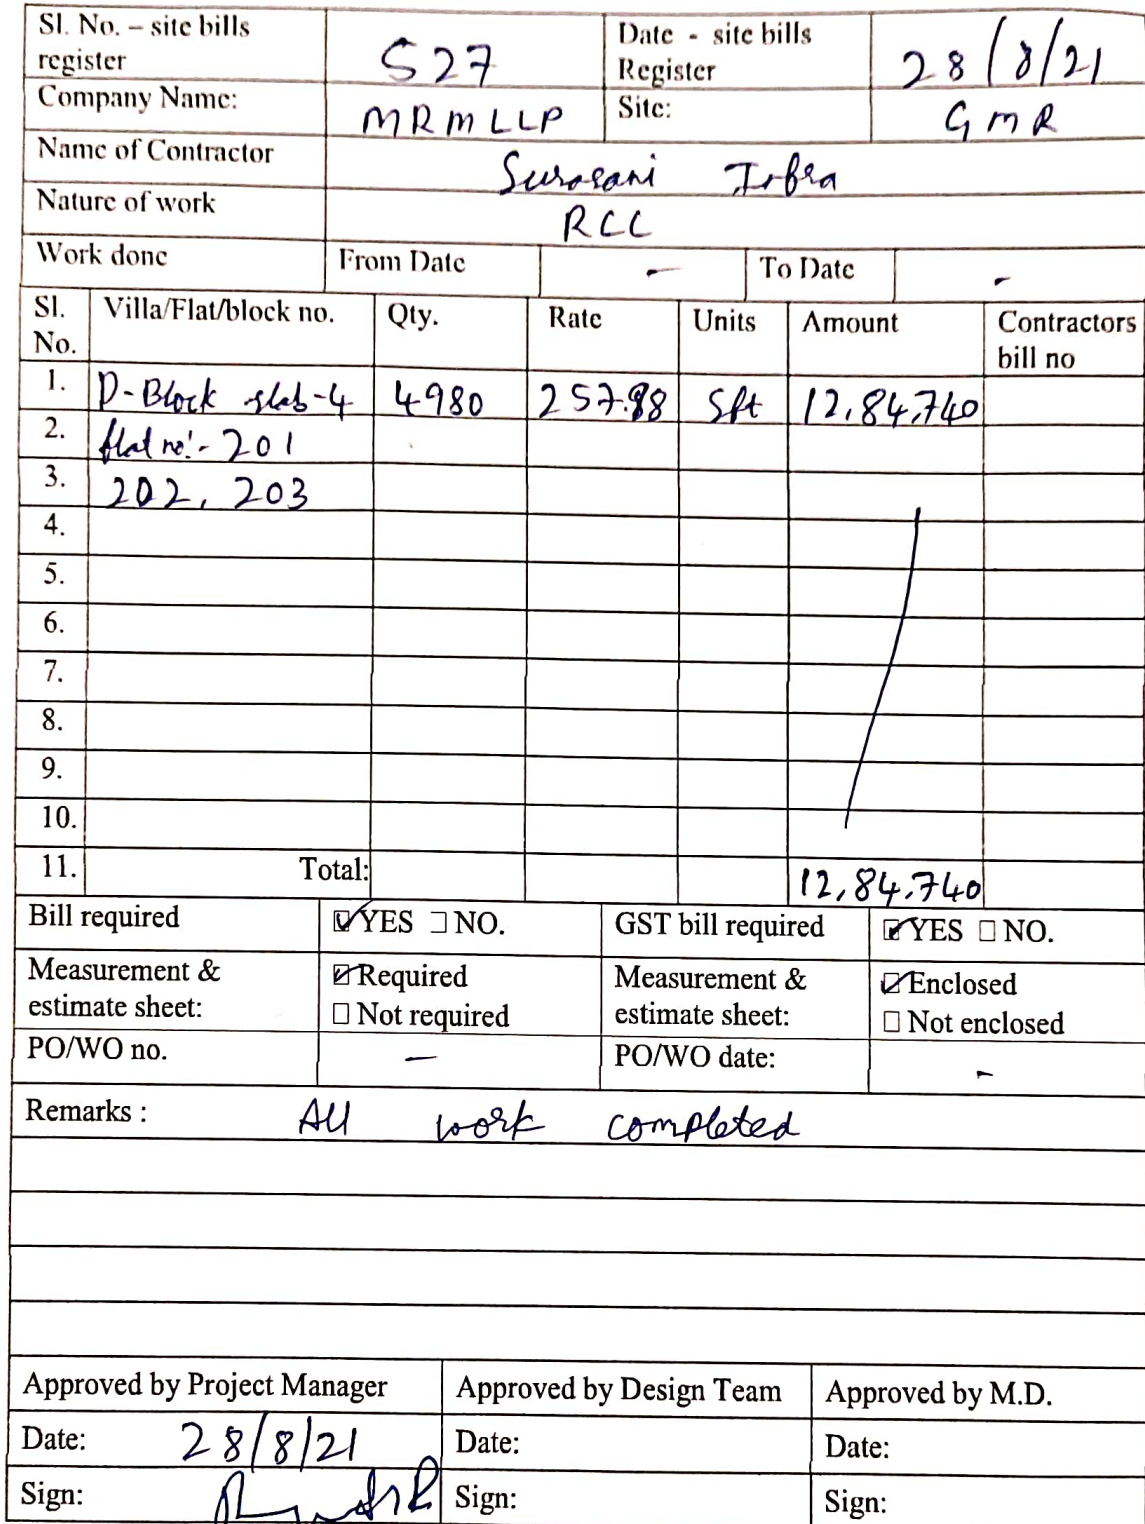 Sl. No. – site bills register 527 Date - site bills Register 28/8/21
Company Name: MRMLLP Site: GMR
Name of Contractor Surasani Infra
Nature of work RCC
Work done From Date - To Date -
Sl. No. Villa/Flat/block no. Qty. Rate Units Amount Contractors bill no
1. D-Block slab-4 4980 257.98 Sft 12,84,740
2. flat no:- 201
3. 202, 203
4.
5.
6.
7.
8.
9.
10.
11. Total: 12,84,740
Bill required ☑YES ☐NO. GST bill required ☑YES ☐NO.
Measurement & estimate sheet: ☑Required ☐Not required Measurement & estimate sheet: ☑Enclosed ☐Not enclosed
PO/WO no. - PO/WO date: -
Remarks : All work completed
Approved by Project Manager Approved by Design Team Approved by M.D.
Date: 28/8/21 Date: Date:
Sign: Sign: Sign: